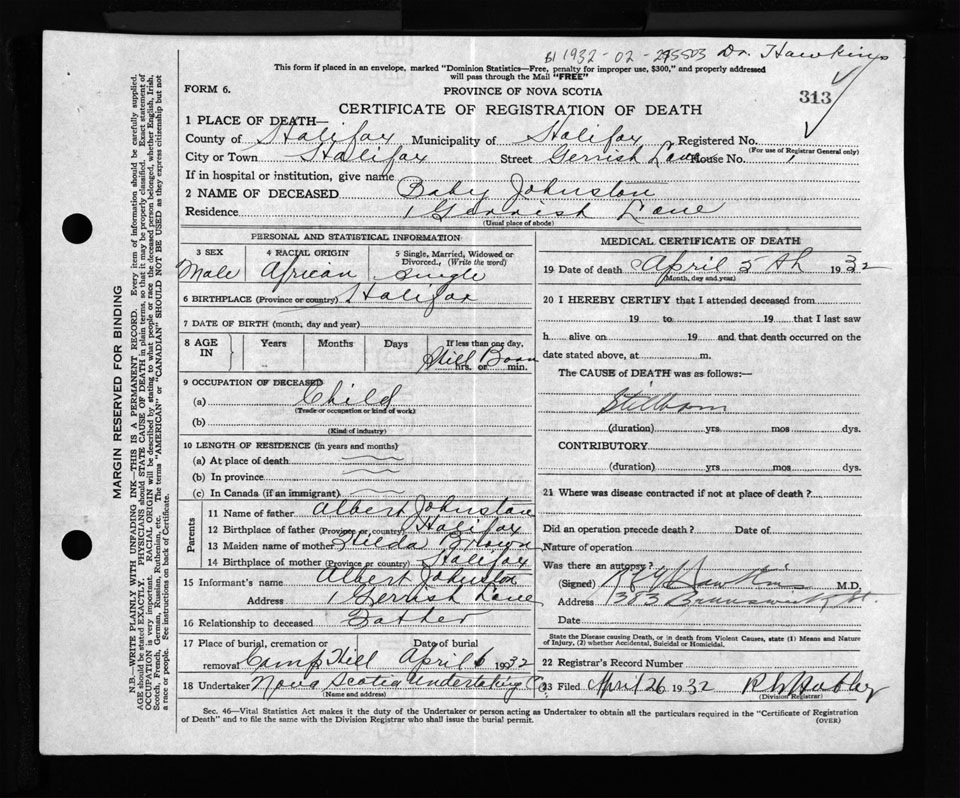 1932-02- Dr. Hawkins
This form if placed in an envelope, marked "Dominion Statistics—Free, penalty for improper use, $300," and properly addressed
will pass through the Mail "FREE"
FORM 6. PROVINCE OF NOVA SCOTIA 313
CERTIFICATE OF REGISTRATION OF DEATH
1 PLACE OF DEATH—
County of Halifax Municipality of Halifax Registered No.
(For use of Registrar General only)
City or Town Halifax Street Gerrish Lane House No. 1
If in hospital or institution, give name
2 NAME OF DECEASED Baby Johnston
Residence 1 Gerrish Lane
(Usual place of abode)
PERSONAL AND STATISTICAL INFORMATION
3 SEX 4 RACIAL ORIGIN 5 Single, Married, Widowed or Divorced., (Write the word)
Male African Single
6 BIRTHPLACE (Province or country) Halifax
7 DATE OF BIRTH (month, day and year)
8 AGE IN Years Months Days If less than one day,
Still Born
hrs. or min.
9 OCCUPATION OF DECEASED
(a) Child
(Trade or occupation or kind of work)
(b)
(Kind of industry)
10 LENGTH OF RESIDENCE (in years and months)
(a) At place of death
(b) In province
(c) In Canada (if an immigrant)
Parents
11 Name of father Albert Johnston
12 Birthplace of father (Province or country) Halifax
13 Maiden name of mother Hilda Brown
14 Birthplace of mother (Province or country) Halifax
15 Informant's name Albert Johnston
Address 1 Gerrish Lane
16 Relationship to deceased Father
17 Place of burial, cremation or Date of burial
removal Camp Hill April 6 1932
18 Undertaker Nova Scotia Undertaking Co
(Name and address)
MEDICAL CERTIFICATE OF DEATH
19 Date of death April 5th 1932
(Month, day and year)
20 I HEREBY CERTIFY that I attended deceased from
19 to 19 that I last saw
h alive on 19 and that death occurred on the
date stated above, at m.
The CAUSE of DEATH was as follows:—
Stillborn
(duration) yrs mos dys.
CONTRIBUTORY
(duration) yrs mos dys.
21 Where was disease contracted if not at place of death?
Did an operation precede death? Date of
Nature of operation
Was there an autopsy?
(Signed) Hawkins M.D,
Address 383 Brunswick St.
Date
State the Disease causing Death, or in death from Violent Causes, state (1) Means and Nature
of Injury, (2) whether Accidental, Suicidal or Homicidal.
22 Registrar's Record Number
23 Filed April 26 1932
(Division Registrar)
Sec. 46—Vital Statistics Act makes it the duty of the Undertaker or person acting as Undertaker to obtain all the particulars required in the "Certificate of Registration
of Death" and to file the same with the Division Registrar who shall issue the burial permit. (OVER)
MARGIN RESERVED FOR BINDING
N.B.—WRITE PLAINLY WITH UNFADING INK—THIS IS A PERMANENT RECORD. Every item of information should be carefully supplied.
AGE should be stated EXACTLY. PHYSICIANS should STATE CAUSE OF DEATH in plain terms, so that it may be properly classified. Exact statement of
OCCUPATION is very important. RACIAL ORIGIN will be described by stating to what people or race the deceased person belonged, whether English, Irish,
Scotch, French, German, Russian, Ruthenian, etc. The terms "AMERICAN" or "CANADIAN" SHOULD NOT BE USED as they express citizenship but not
a race or people. See instructions on back of Certificate.